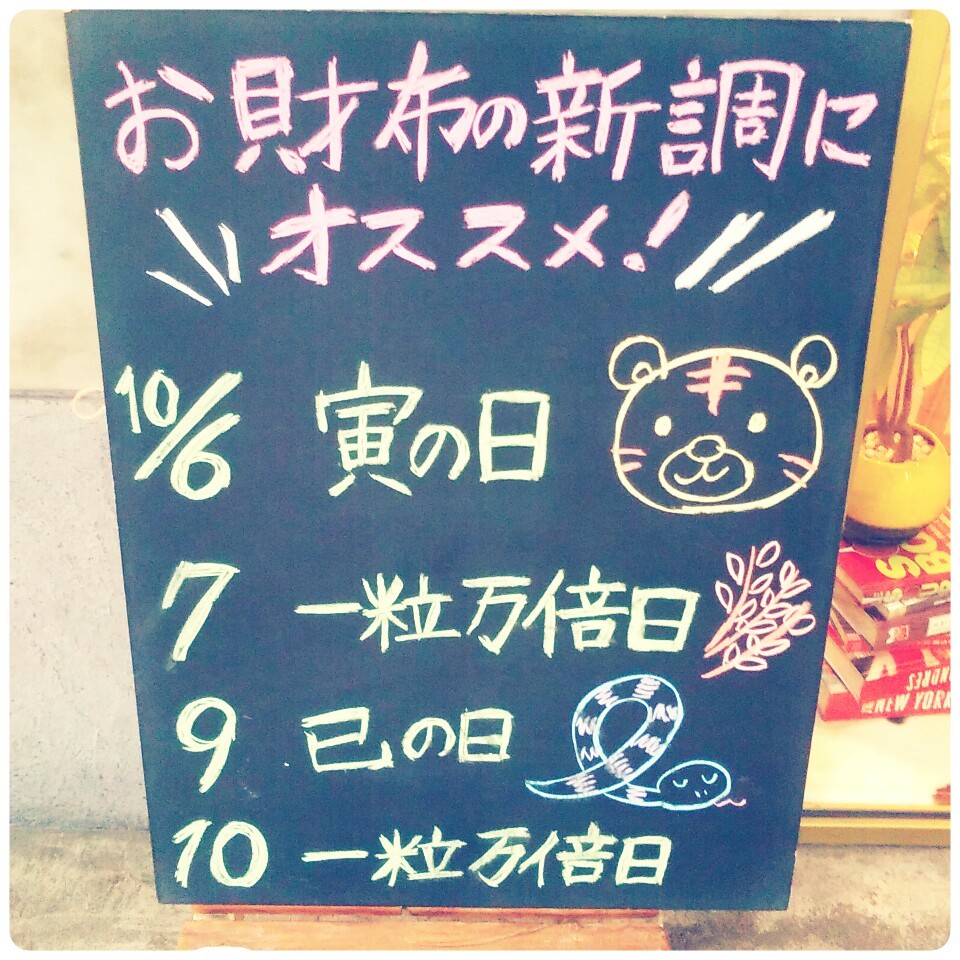 お財布の新調に
オススメ!
10/6 寅の日
7 一粒万倍日
9 巳の日
10 一粒万倍日
NEW YORK